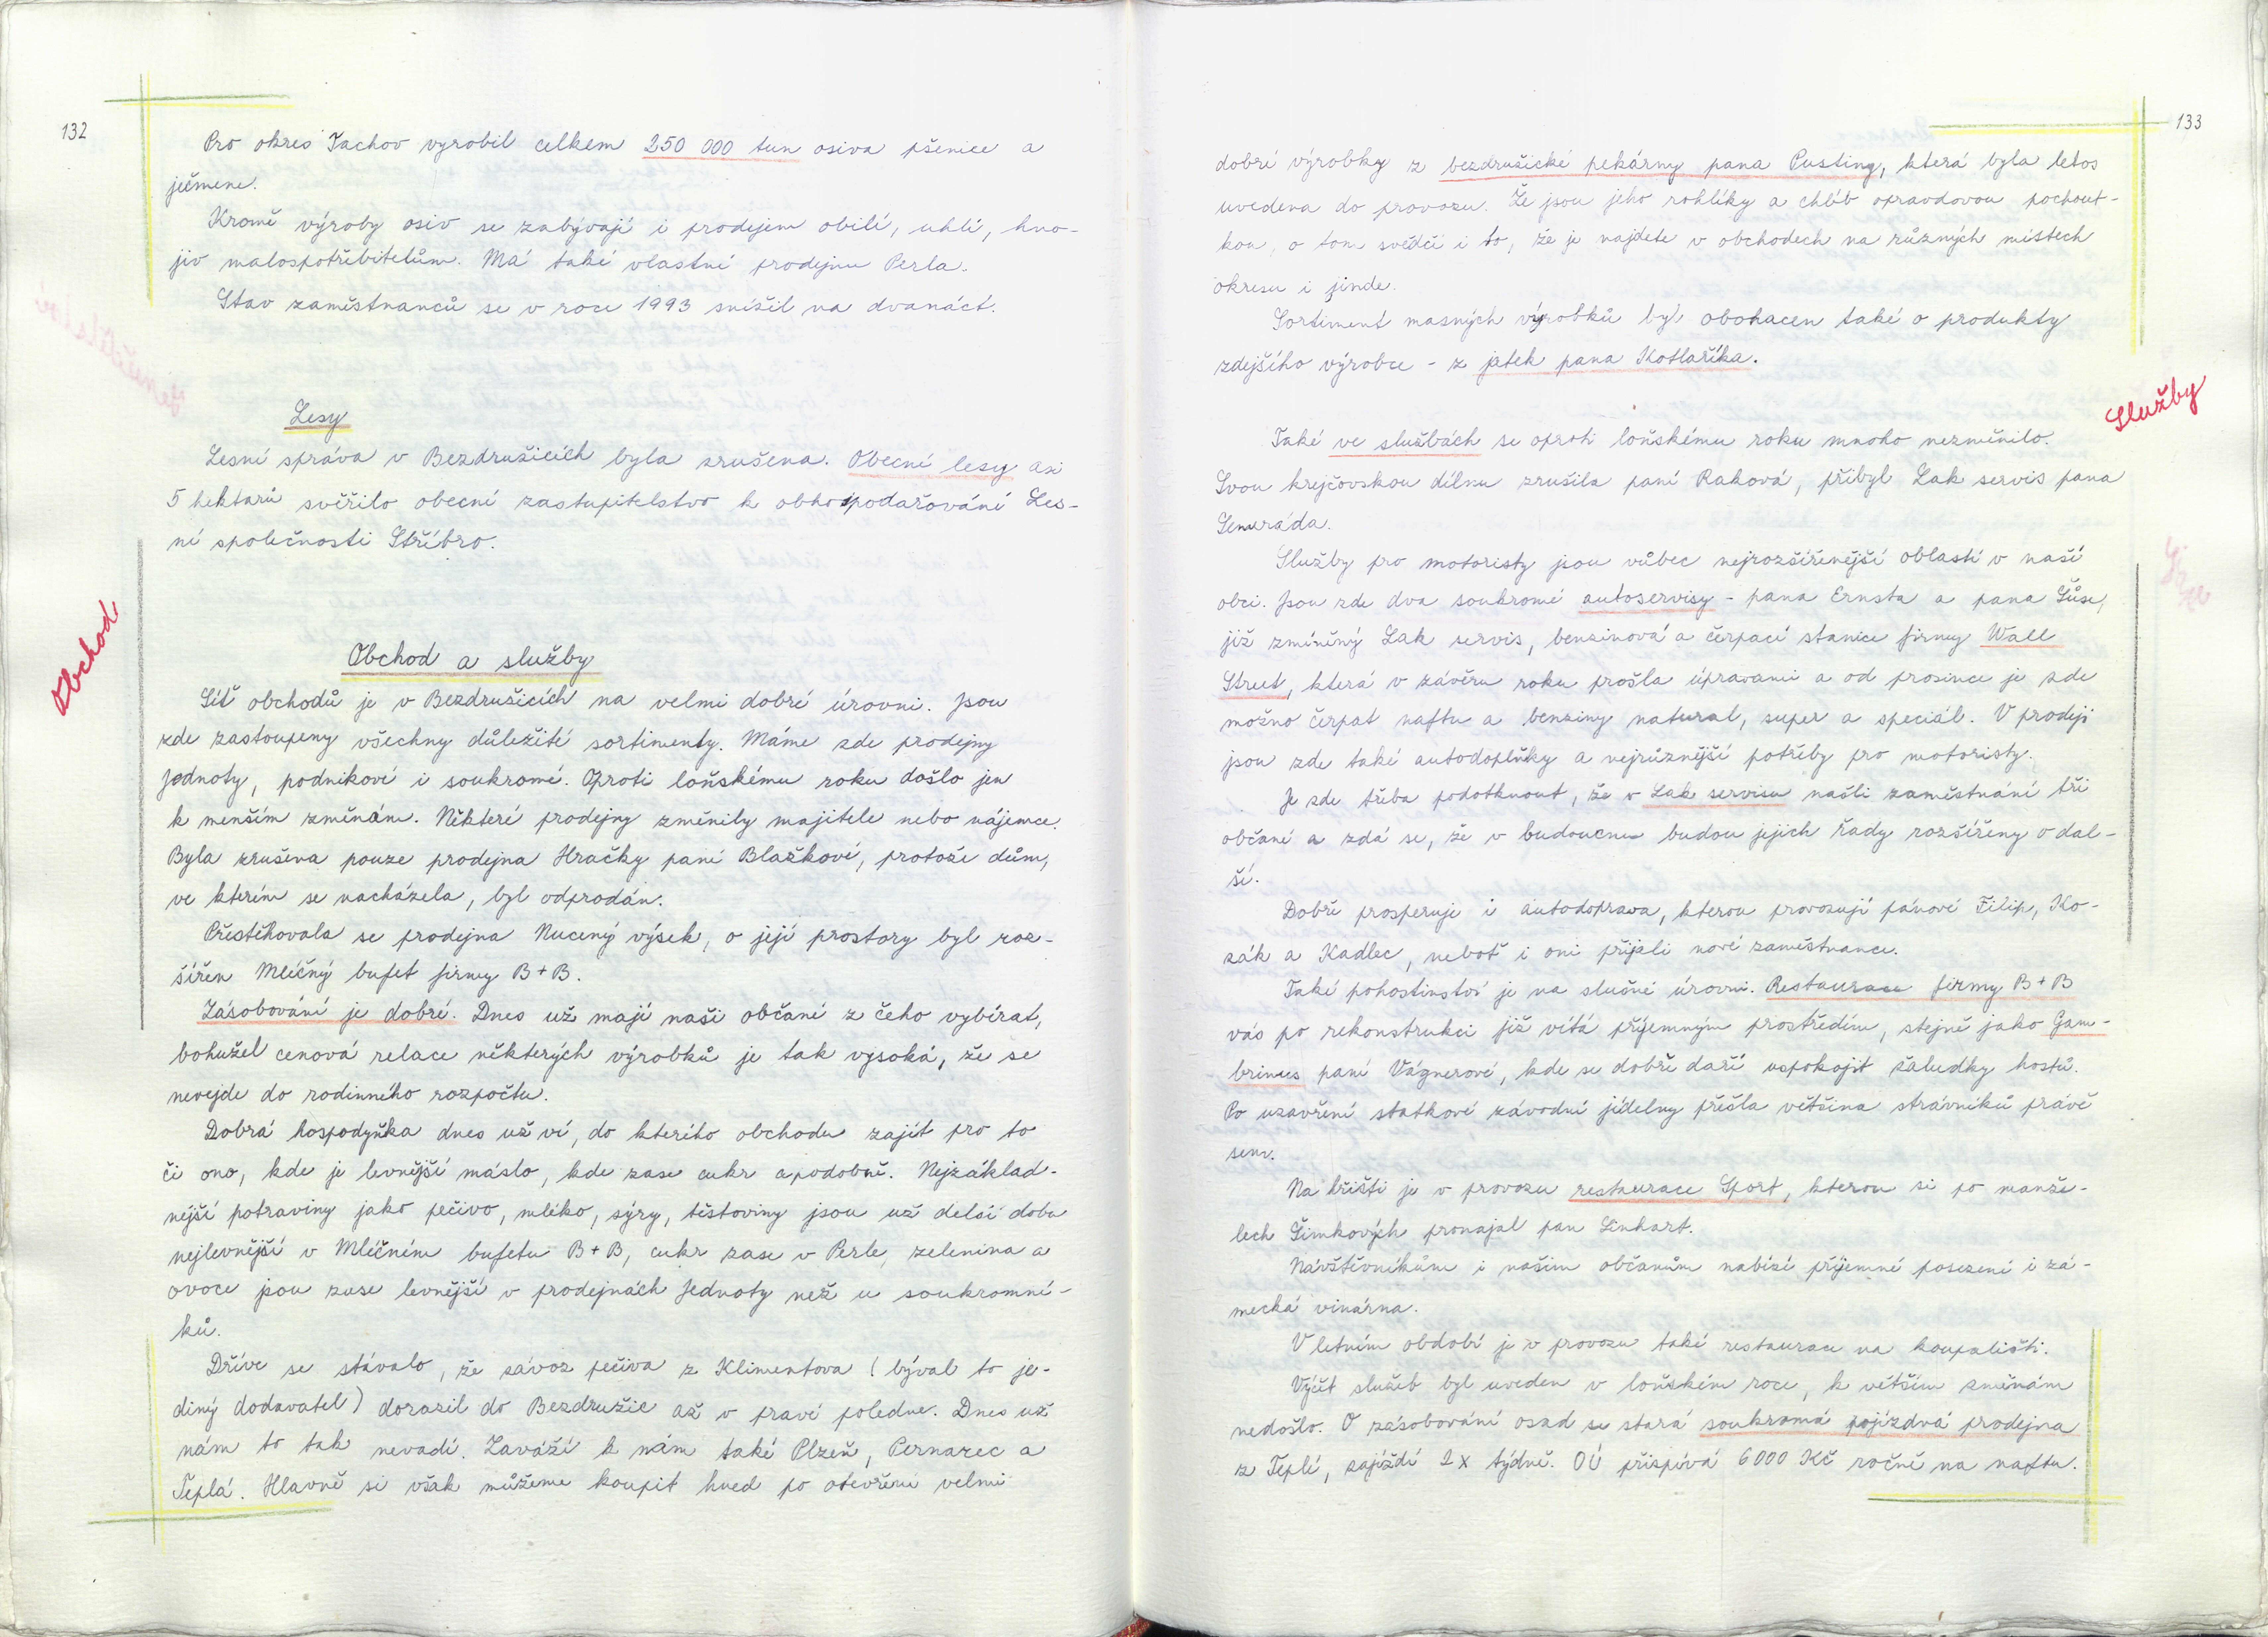 132
Pro okres Tachov vyrobil celkem 250 000 tun osiva pšenice a
ječmene.
Kromě výroby osiv se zabývají i prodejem obilí, uhlí, hno-
jiv malospotřebitelům. Má také vlastní prodejnu Perla.
Stav zaměstnanců se v roce 1993 snížil na dvanáct.
Lesy
Lesní správa v Bezdružicích byla zrušena. Obecní lesy asi
5 hektarů svěřilo obecní zastupitelstvo k obhospodařování Les-
ní společnosti Stříbro.
Obchod
Obchod a služby
Síť obchodů je v Bezdružicích na velmi dobré úrovni. Jsou
zde zastoupeny všechny důležité sortimenty. Máme zde prodejny
Jednoty, podnikové i soukromé. Oproti loňskému roku došlo jen
k menším změnám. Některé prodejny změnily majitele nebo nájemce.
Byla zrušena pouze prodejna Hračky paní Blažkové, protože dům,
ve kterém se nacházela, byl odprodán.
Přestěhovala se prodejna Nucený výsek, o její prostory byl roz-
šířen Mléčný bufet firmy B+B.
Zásobování je dobré. Dnes už mají naši občané z čeho vybírat,
bohužel cenová relace některých výrobků je tak vysoká, že se
nevejde do rodinného rozpočtu.
Dobrá hospodyňka dnes už ví, do kterého obchodu zajít pro to
či ono, kde je levnější máslo, kde zase cukr apodobně. Nejzáklad-
nější potraviny jako pečivo, mléko, sýry, těstoviny jsou už delší dobu
nejlevnější v Mléčném bufetu B+B, cukr zase v Perle, zelenina a
ovoce jsou zase levnější v prodejnách Jednoty než u soukromní-
ků.
Dříve se stávalo, že závoz pečiva z Klimentova (býval to je-
diný dodavatel) dorazil do Bezdružic až v pravé poledne. Dnes už
nám to tak nevadí. Zaváží k nám také Plzeň, Pernarec a
Teplá. Hlavně si však můžeme koupit hned po otevření velmi
133
dobré výrobky z bezdružické pekárny pana Pusting, která byla letos
uvedena do provozu. Že jsou jeho rohlíky a chléb opravdovou pochout-
kou, o tom svědčí i to, že je najdete v obchodech na různých místech
okresu i jinde.
Sortiment masných výrobků byl obohacen také o produkty
zdejšího výrobce - z jatek pana Kotlaříka.
Služby
Také ve službách se oproti loňskému roku mnoho nezměnilo.
Svou krejčovskou dílnu zrušila paní Raková, přibyl Lak servis pana
Služby pro motoristy jsou vůbec nejrozšířenější oblastí v naší
obci. Jsou zde dva soukromé autoservisy - pana Ernsta a pana
již zmíněný Lak servis, benzinová a čerpací stanice firmy Wall
Street, která v závěru roku prošla úpravami a od prosince je zde
možno čerpat naftu a benziny natural, super a speciál. V prodeji
jsou zde také autodoplňky a nejrůznější potřeby pro motoristy.
Je zde třeba podotknout, že v Lak servisu našli zaměstnání tři
občané a zdá se, že v budoucnu budou jejich řady rozšířeny o dal-
ší.
Dobře prosperuje i autodoprava, kterou provozují pánové Filip, Ko-
zák a Kadlec, neboť i oni přijali nové zaměstnance.
Také pohostinství je na slušné úrovni. Restaurace firmy B+B
vás po rekonstrukci již vítá příjemným prostředím, stejně jako Gam-
brinus paní Vágnerové, kde se dobře daří uspokojit žaludky hostů.
Po uzavření statkové závodní jídelny přešla většina strávníků právě
sem.
Na hřišti je v provozu restaurace Sport, kterou si po manže-
lech Šimkových pronajal pan Linhart.
Návštěvníkům i našim občanům nabízí příjemné posezení i zá-
mecká vinárna.
V letním období je v provozu také restaurace na koupališti.
Výčet služeb byl uveden v loňském roce, k větším změnám
nedošlo. O zásobování osad se stará soukromá pojízdná prodejna
z Teplé, zajíždí 2x týdně. OÚ přispívá 6000 Kč ročně na naftu.